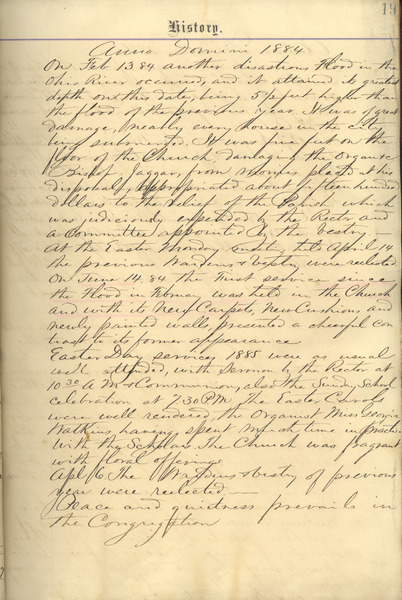 19
History.
Anno Domini 1884
On Feb 13.84 another disastrous flood in the
Ohio River occurred, and it attained its greatest
depth on this date, being 5 feet higher than
the flood of the previous year. It was of great
damage, nearly every house in the city
being submerged. It was five feet on the
floor of the Church, damaging the Organ &c
Bishop Jaggar, from monies placed at his
disposal, appropriated about fifteen hundred
dollars to the relief of the Parish which
was judiciously expended by the Rector and
a Committee appointed by the Vestry —
At the Easter Monday April 14
the previous Wardens & Vestry were reelected
On June 14.84 the First service since
the Flood in February was held in the Church
and with its New Carpets, New Cushions and
newly painted walls, presented a cheerful con
trast to its former appearance
Easter Day services 1885 were as usual
well attended, with Sermon by the Rector at
10 30 A M & Communion, also the Sunday School
celebration at 7.30 P.M. The Easter Carols
were well rendered the Organist Miss Georgia
Watkins having spent much time in practice
with the Scholars. The Church was fragrant
with floral offerings
Apl 6. The Wardens & Vestry of previous
year were reelected —
Peace and quietness prevails in
the Congregation